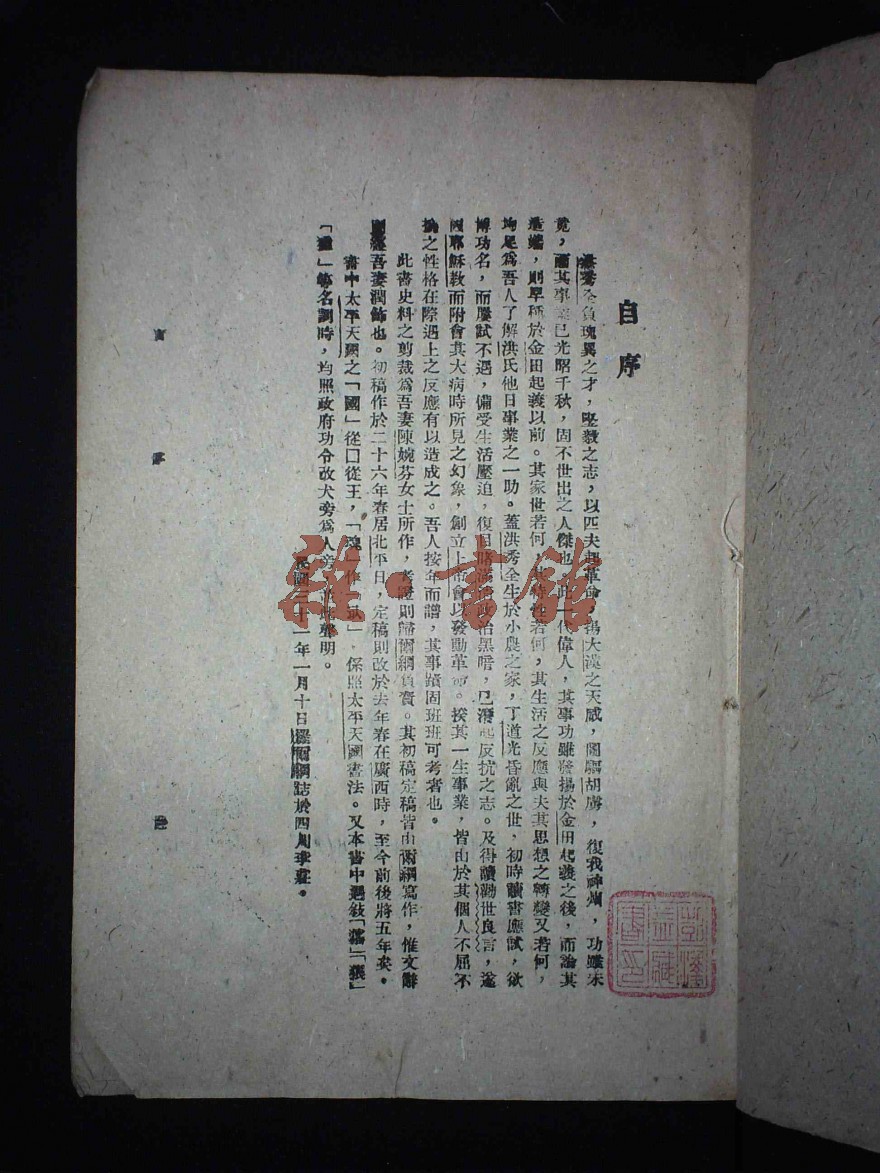 自序
洪秀全負瑰異之才，堅毅之志，以匹夫起革命，揚大漢之天威，闢驅胡虜，復我神州，功雖未
竟，而其事業已光昭千秋，固不世出之人傑也。此一代偉人，其事功雖發揚於金田起義之後，而論其
造端，則早種於金田起義以前。其家世若何，其特性若何，其生活之反應與夫其思想之轉變又若何，
均足爲吾人了解洪氏他日事業之一助。蓋洪秀全生於小農之家，丁道光昏亂之世，初時讀書應試，欲
博功名，而屢試不遇，備受生活壓迫，復目睹滿清政治黑暗，已潑起反抗之志。及得讀勸世良言，遂
因耶穌教而附會其大病時所見之幻象，創立上帝會以發動革命。揆其一生事業，皆由於其個人不屈不
撓之性格在際遇上之反應有以造成之。吾人按年而譜，其事蹟固班班可考者也。
此書史料之剪裁爲吾妻陳婉芬女士所作，考證則歸爾綱負責。其初稿定稿皆由爾綱寫作，惟文辭
則經吾妻潤飾也。初稿作於二十六年春居北平日，定稿則改於去年春在廣西時，至今前後將五年矣。
書中太平天國之「國」從囗從王，「魂」作「䰟」，係照太平天國書法。又本書中遇敍「猺」「獞」
「」等名詞時，均照政府功令改犬旁爲人旁，聲明。
民國三十一年一月十日羅爾綱誌於四川李莊。
自序
雜·書館